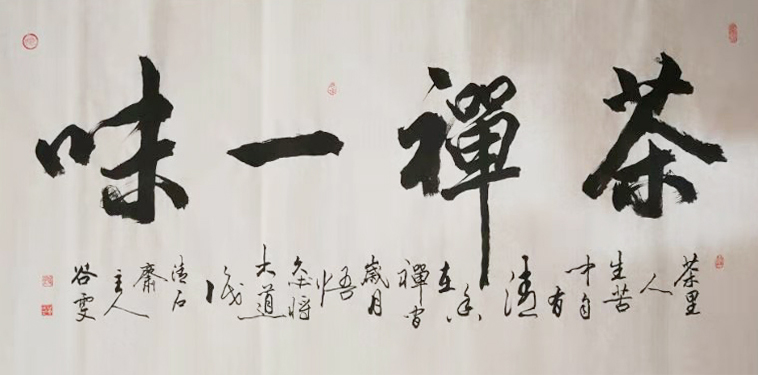 茶禪一味
茶里
人
生苦
中自
有
清
禪
歲月
悟
將
大道
清石
齋
主人
谷雯